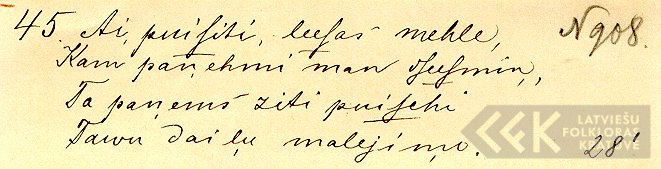 45. Ai, puisiti, leesas mehle, N 908.
Kam paņehmi man dseesmiņ,
Ta paņems ziti puischi
Tawu dailu malejiņu. 28!
LATVIEŠU
FOLKLORAS
KRĀTUVE